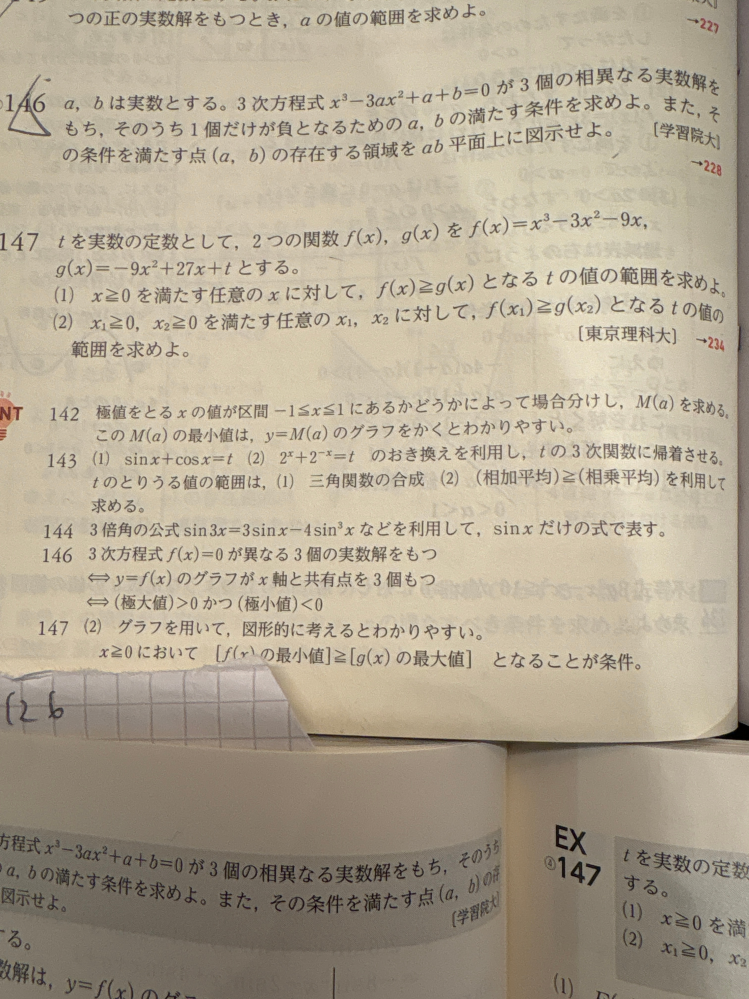 つの正の実数解をもつとき，aの値の範囲を求めよ。
→227
146 a, bは実数とする。3次方程式 x³−3ax²+a+b=0 が3個の相異なる実数解を
もち，そのうち1個だけが負となるためのa, bの満たす条件を求めよ。また，そ
の条件を満たす点 (a, b) の存在する領域をab平面上に図示せよ。 [学習院大]
→228
147 tを実数の定数として，2つの関数 f(x), g(x) を f(x)=x³−3x²−9x,
g(x)=−9x²+27x+t とする。
(1) x≧0 を満たす任意のxに対して，f(x)≧g(x) となるtの値の範囲を求めよ。
(2) x₁≧0, x₂≧0 を満たす任意の x₁, x₂ に対して，f(x₁)≧g(x₂) となるtの値の
範囲を求めよ。 [東京理科大] →234
NT
142 極値をとるxの値が区間 −1≦x≦1 にあるかどうかによって場合分けし，M(a) を求める。
このM(a) の最小値は，y=M(a) のグラフをかくとわかりやすい。
143 (1) sinx+cosx=t (2) 2ˣ+2⁻ˣ=t のおき換えを利用し，tの3次関数に帰着させる。
tのとりうる値の範囲は，(1) 三角関数の合成 (2) (相加平均)≧(相乗平均) を利用して
求める。
144 3倍角の公式 sin3x=3sinx−4sin³x などを利用して，sinx だけの式で表す。
146 3次方程式 f(x)=0 が異なる3個の実数解をもつ
⇔ y=f(x) のグラフがx軸と共有点を3個もつ
⇔ (極大値)>0 かつ (極小値)<0
147 (2) グラフを用いて，図形的に考えるとわかりやすい。
x≧0 において [f(x) の最小値]≧[g(x) の最大値] となることが条件。
方程式 x³−3ax²+a+b=0 が3個の相異なる実数解をもち，そのうち
a, bの満たす条件を求めよ。また，その条件を満たす点 (a, b) の存
図示せよ。 [学習院大]
する。
数解は，y=f(x) のグラ
EX
④147
tを実数の定数
する。
(1) x≧0 を満
(2) x₁≧0, x₂
(1)